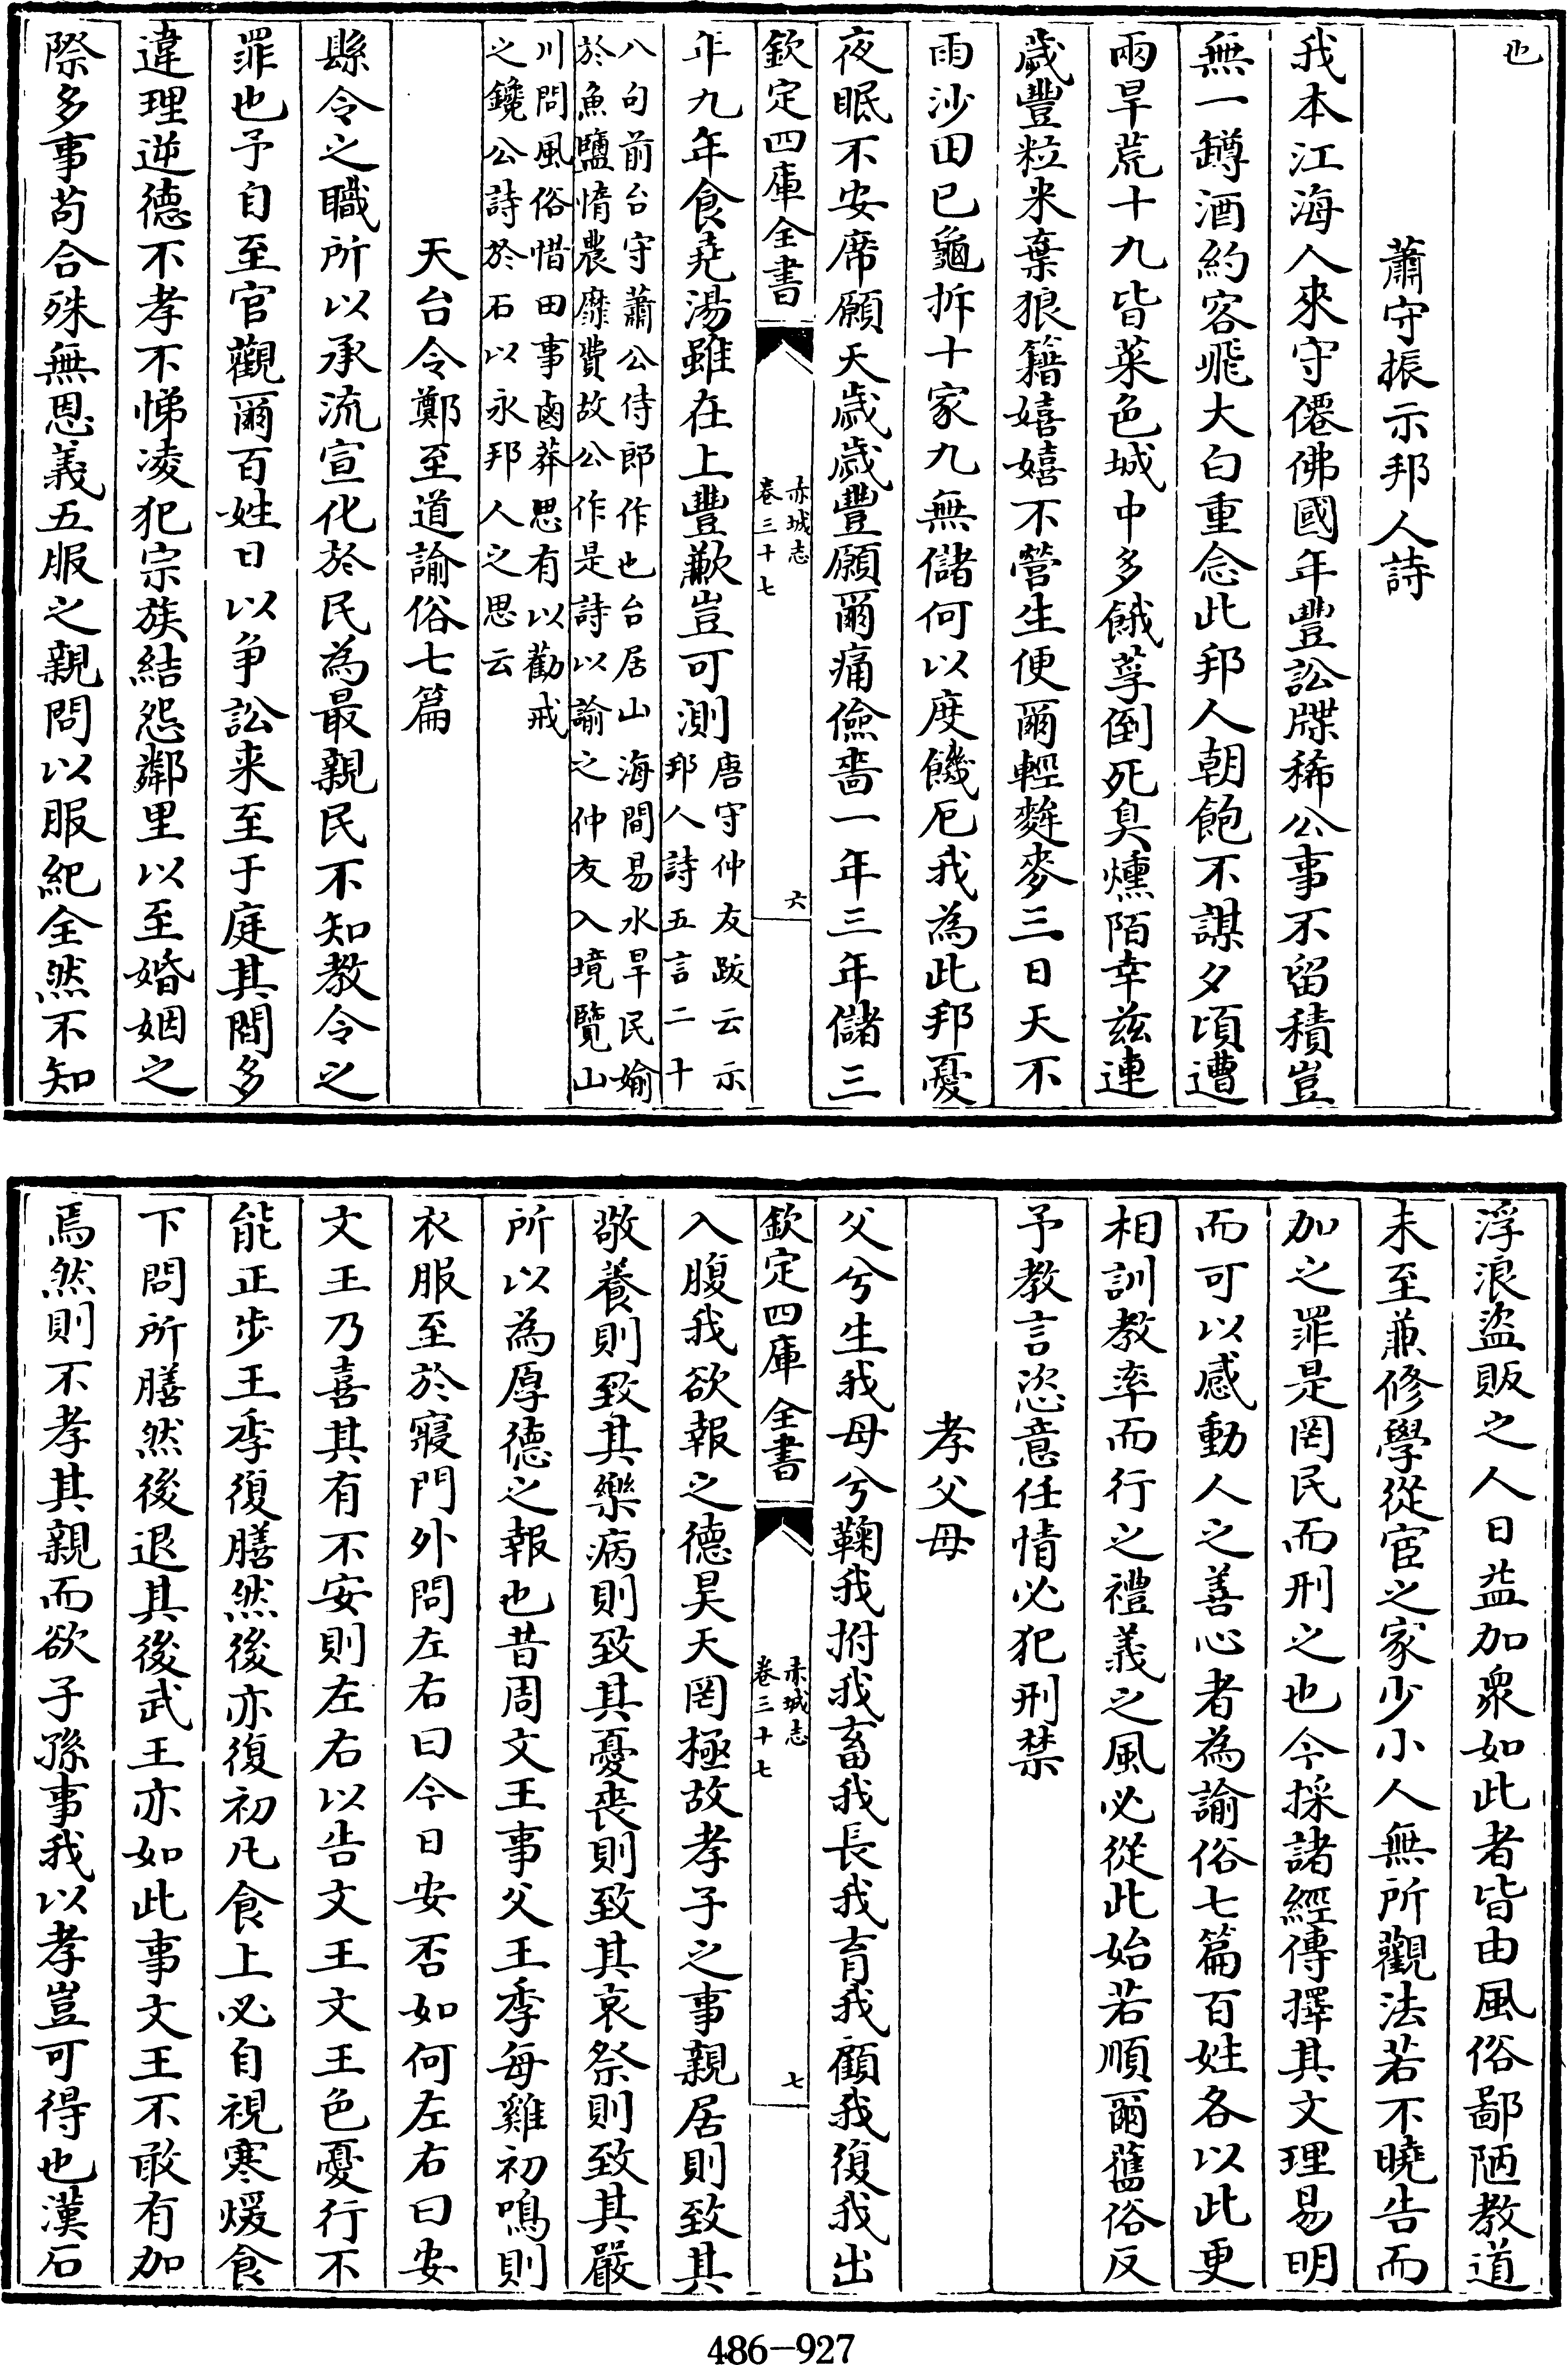 也
蕭守振示邦人詩
我本江海人來守僊佛國年豐訟牒稀公事不留積豈
無一罇酒約客飛大白重念此邦人朝飽不謀夕頃遭
兩旱荒十九皆菜色城中多餓莩倒死臭燻陌幸兹連
歲豐粒米棄狼籍嬉嬉不營生便爾輕麰麥三日天不
雨沙田已龜拆十家九無儲何以度饑厄我為此邦憂
夜眠不安席願天歲歲豐願爾痛儉嗇一年三年儲三
欽定四庫全書
赤城志
卷三十七
六
年九年食堯湯雖在上豐歉豈可測唐守仲友跋云示
邦人詩五言二十
八句前台守蕭公侍郎作也台居山海間易水旱民媮
於魚鹽惰農靡費故公作是詩以諭之仲友入境覽山
川問風俗惜田事鹵莽思有以勸戒
之鑱公詩於石以永邦人之思云
天台令鄭至道諭俗七篇
縣令之職所以承流宣化於民為最親民不知教令之
罪也予自至官觀爾百姓日以争訟来至于庭其間多
違理逆德不孝不悌凌犯宗族結怨鄰里以至婚姻之
際多事苟合殊無恩義五服之親問以服紀全然不知
浮浪盜販之人日益加衆如此者皆由風俗鄙陋教道
未至兼修學從宦之家少小人無所觀法若不曉告而
加之罪是罔民而刑之也今採諸經傳擇其文理易明
而可以感動人之善心者為諭俗七篇百姓各以此更
相訓教率而行之禮義之風必從此始若順爾舊俗反
予教言恣意任情必犯刑禁
孝父母
父兮生我母兮鞠我拊我畜我長我育我顧我復我出
欽定四庫全書
赤城志
卷三十七
七
入腹我欲報之德昊天罔極故孝子之事親居則致其
敬養則致其樂病則致其憂喪則致其哀祭則致其嚴
所以為厚德之報也昔周文王事父王季每雞初鳴則
衣服至於寢門外問左右曰今日安否如何左右曰安
文王乃喜其有不安則左右以告文王文王色憂行不
能正步王季復膳然後亦復初凡食上必自視寒煖食
下問所膳然後退其後武王亦如此事文王不敢有加
焉然則不孝其親而欲子孫事我以孝豈可得也漢石
486-927